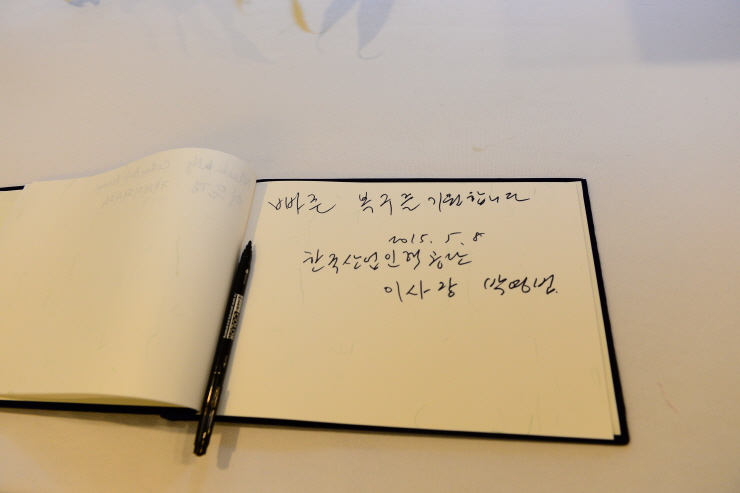 빠른 복구를 기원합니다
2015. 5. 8
한국산업인력공단
이사장 박영범